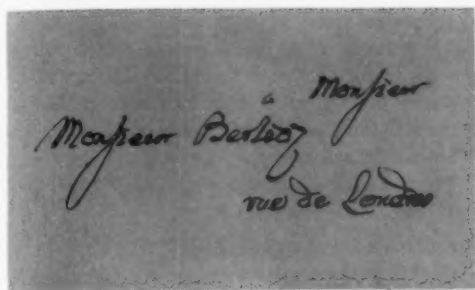 à Monsieur
Monsieur Berlioz
rue de Londres